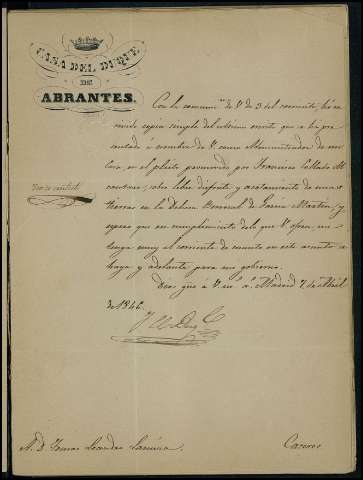 CASA DEL DUQUE
DE
ABRANTES.
Con la comunic.ⁿ de V. de 3 del corriente, he re-
cibido copia simple del último escrito que se ha pre-
sentado á nombre de V. como Administrador de mi
casa, en el pleito promovido por Francisco
sobre libre disfrute y acotamiento de unas
tierras en la Dehesa de García Martin, y
espero que en cumplimiento de lo que V. ofrece, me
tenga muy al corriente de cuanto en este asunto
haya y adelante para mi gobierno.
Dios gue á V. m. a. Madrid 7 de Abril
de 1846.
S. D. Tomas Leandro
Caceres